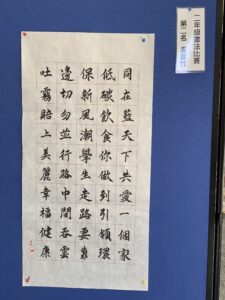 二年級書法比賽
第二名
同在藍天下共愛一個家
低碳飲食你做到引領環
保新風潮學生走路要靠
邊切勿並行路中間吞雲
吐霧賠上美麗幸福健康